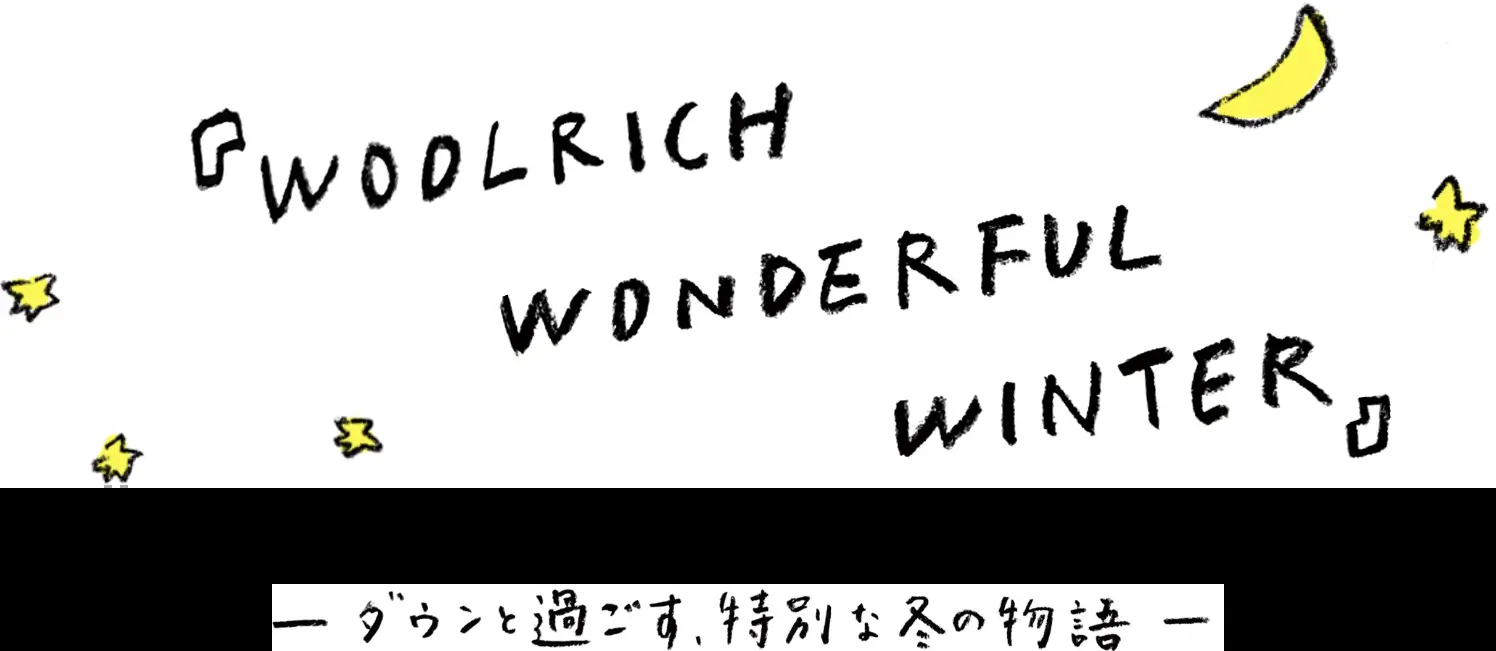 『WOOLRICH
WONDERFUL
WINTER』
— ダウンと過ごす、特別な冬の物語 —